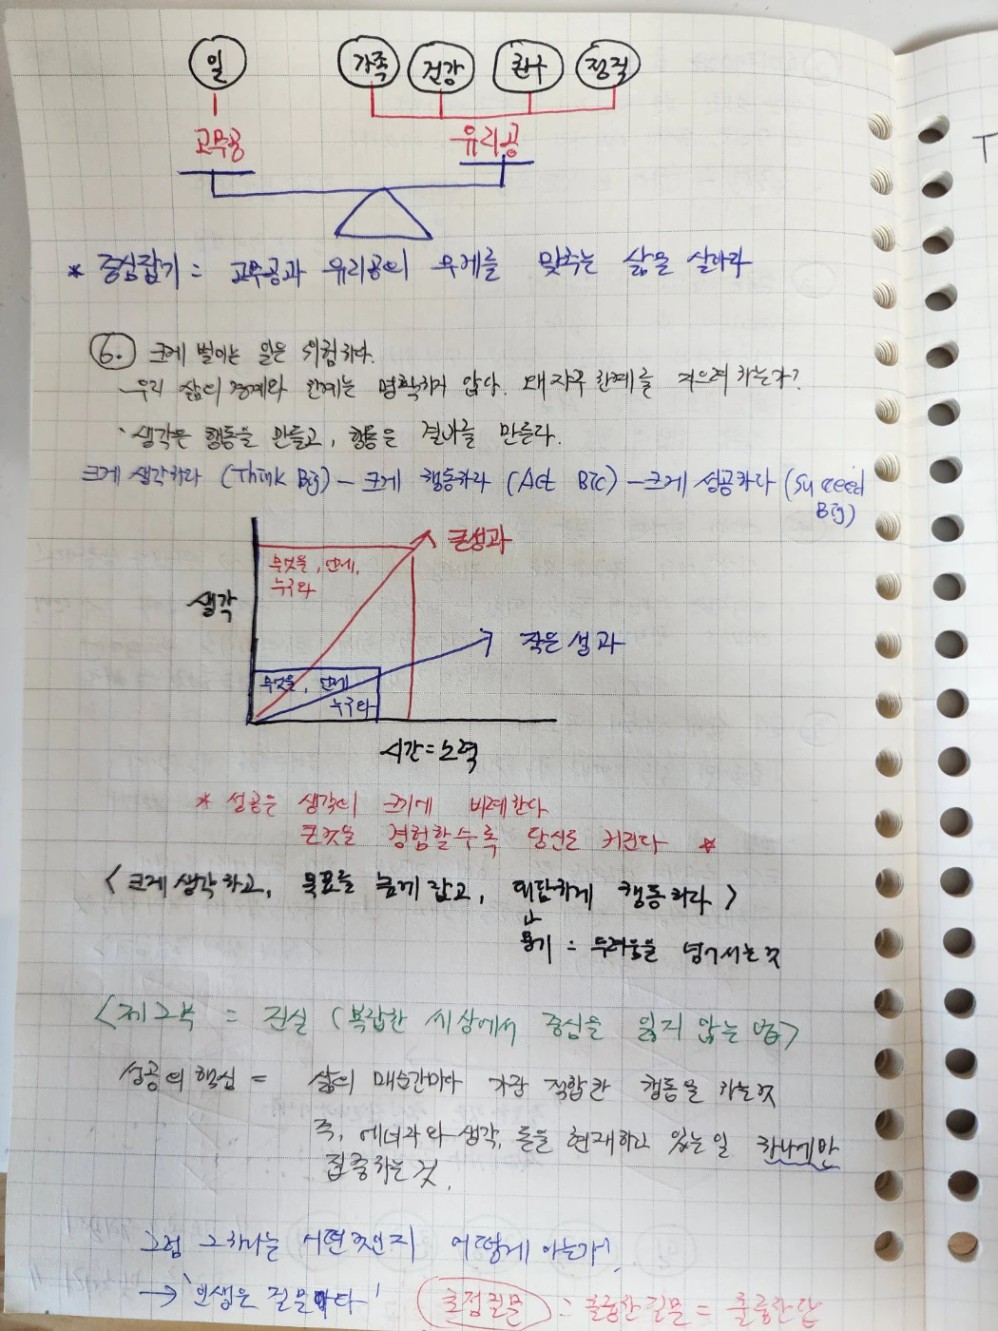 일 가족 건강 친구 정직
고무공 유리공
* 중심잡기 = 고무공과 유리공의 무게를 맞추는 삶을 살아라
6. 크게 벌이는 일은 위험하다.
우리 삶의 경계와 한계는 명확하지 않다. 왜 자꾸 한계를 지으려 하는가?
생각은 행동을 만들고, 행동은 결과를 만든다.
크게 생각하라 (Think Big) - 크게 행동하라 (Act BIG) - 크게 성공하라 (Succeed
Big)
큰성과
무엇을, 언제,
누구와
생각
작은 성과
무엇을, 언제
누구와
시간=노력
* 성공은 생각의 크기에 비례한다
큰것을 경험할수록 당신은 커진다 *
<크게 생각하고, 목표를 높게 잡고, 대담하게 행동하라>
용기 = 두려움을 넘어서는 것
<제2부 = 진실 (복잡한 세상에서 중심을 잃지 않는 법>
성공의 핵심 = 삶의 매순간마다 가장 적합한 행동을 하는것
즉, 에너지와 생각, 등을 현재하고 있는 일 하나에만
집중하는 것.
그럼 그 하나는 어떤것인지 어떻게 아는가?
→ '인생은 질문이다' 초점질문 : 훌륭한 질문 = 훌륭한 답